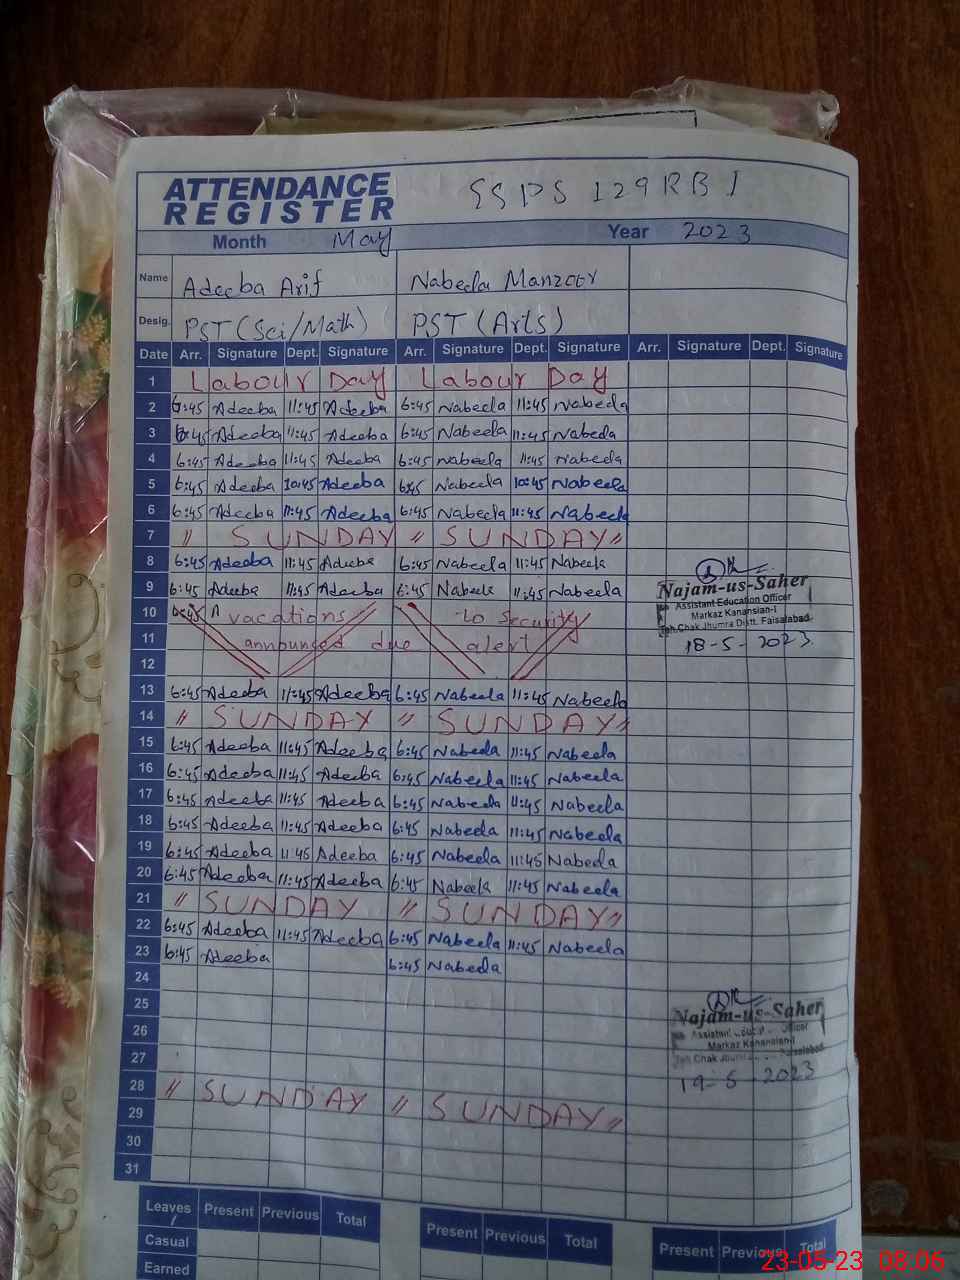 ATTENDANCE
REGISTER
SSPS 129RB1
Month May Year 2023
Name Adeeba Arif Nabeela Manzoor
Desig. PST (Sci/Math) PST (Arts)
Date Arr. Signature Dept. Signature Arr. Signature Dept. Signature Arr. Signature Dept. Signature
1 Labour Day Labour Day
2 6:45 Adeeba 11:45 Adeeba 6:45 Nabeela 11:45 Nabeela
3 6:45 Adeeba 11:45 Adeeba 6:45 Nabeela 11:45 Nabeela
4 6:45 Adeeba 11:45 Adeeba 6:45 Nabeela 11:45 Nabeela
5 6:45 Adeeba 10:45 Adeeba 6:45 Nabeela 10:45 Nabeela
6 6:45 Adeeba 11:45 Adeeba 6:45 Nabeela 11:45 Nabeela
7 " SUNDAY " SUNDAY "
8 6:45 Adeeba 11:45 Adeeba 6:45 Nabeela 11:45 Nabeela
9 6:45 Adeeba 11:45 Adeeba 6:45 Nabeela 11:45 Nabeela
10 6:45 vacations to security
11 announced due alert
12
13 6:45 Adeeba 11:45 Adeeba 6:45 Nabeela 11:45 Nabeela
14 " SUNDAY " SUNDAY "
15 6:45 Adeeba 11:45 Adeeba 6:45 Nabeela 11:45 Nabeela
16 6:45 Adeeba 11:45 Adeeba 6:45 Nabeela 11:45 Nabeela
17 6:45 Adeeba 11:45 Adeeba 6:45 Nabeela 11:45 Nabeela
18 6:45 Adeeba 11:45 Adeeba 6:45 Nabeela 11:45 Nabeela
19 6:45 Adeeba 11:45 Adeeba 6:45 Nabeela 11:45 Nabeela
20 6:45 Adeeba 11:45 Adeeba 6:45 Nabeela 11:45 Nabeela
21 " SUNDAY " SUNDAY "
22 6:45 Adeeba 11:45 Adeeba 6:45 Nabeela 11:45 Nabeela
23 6:45 Adeeba 6:45 Nabeela
24
25
26
27
28 " SUNDAY " SUNDAY "
29
30
31
Najam-us-Saher
Assistant Education Officer
Markaz Kanansian-I
Teh Chak Jhumra Distt. Faisalabad
18-5-2023
Najam-us-Saher
Assistant Officer
Markaz Kanansian-I
Teh Chak Faisalabad
19-5-2023
Leaves / Present Previous Total Present Previous Total Present Previous Total
Casual
Earned
23-05-23 08:06